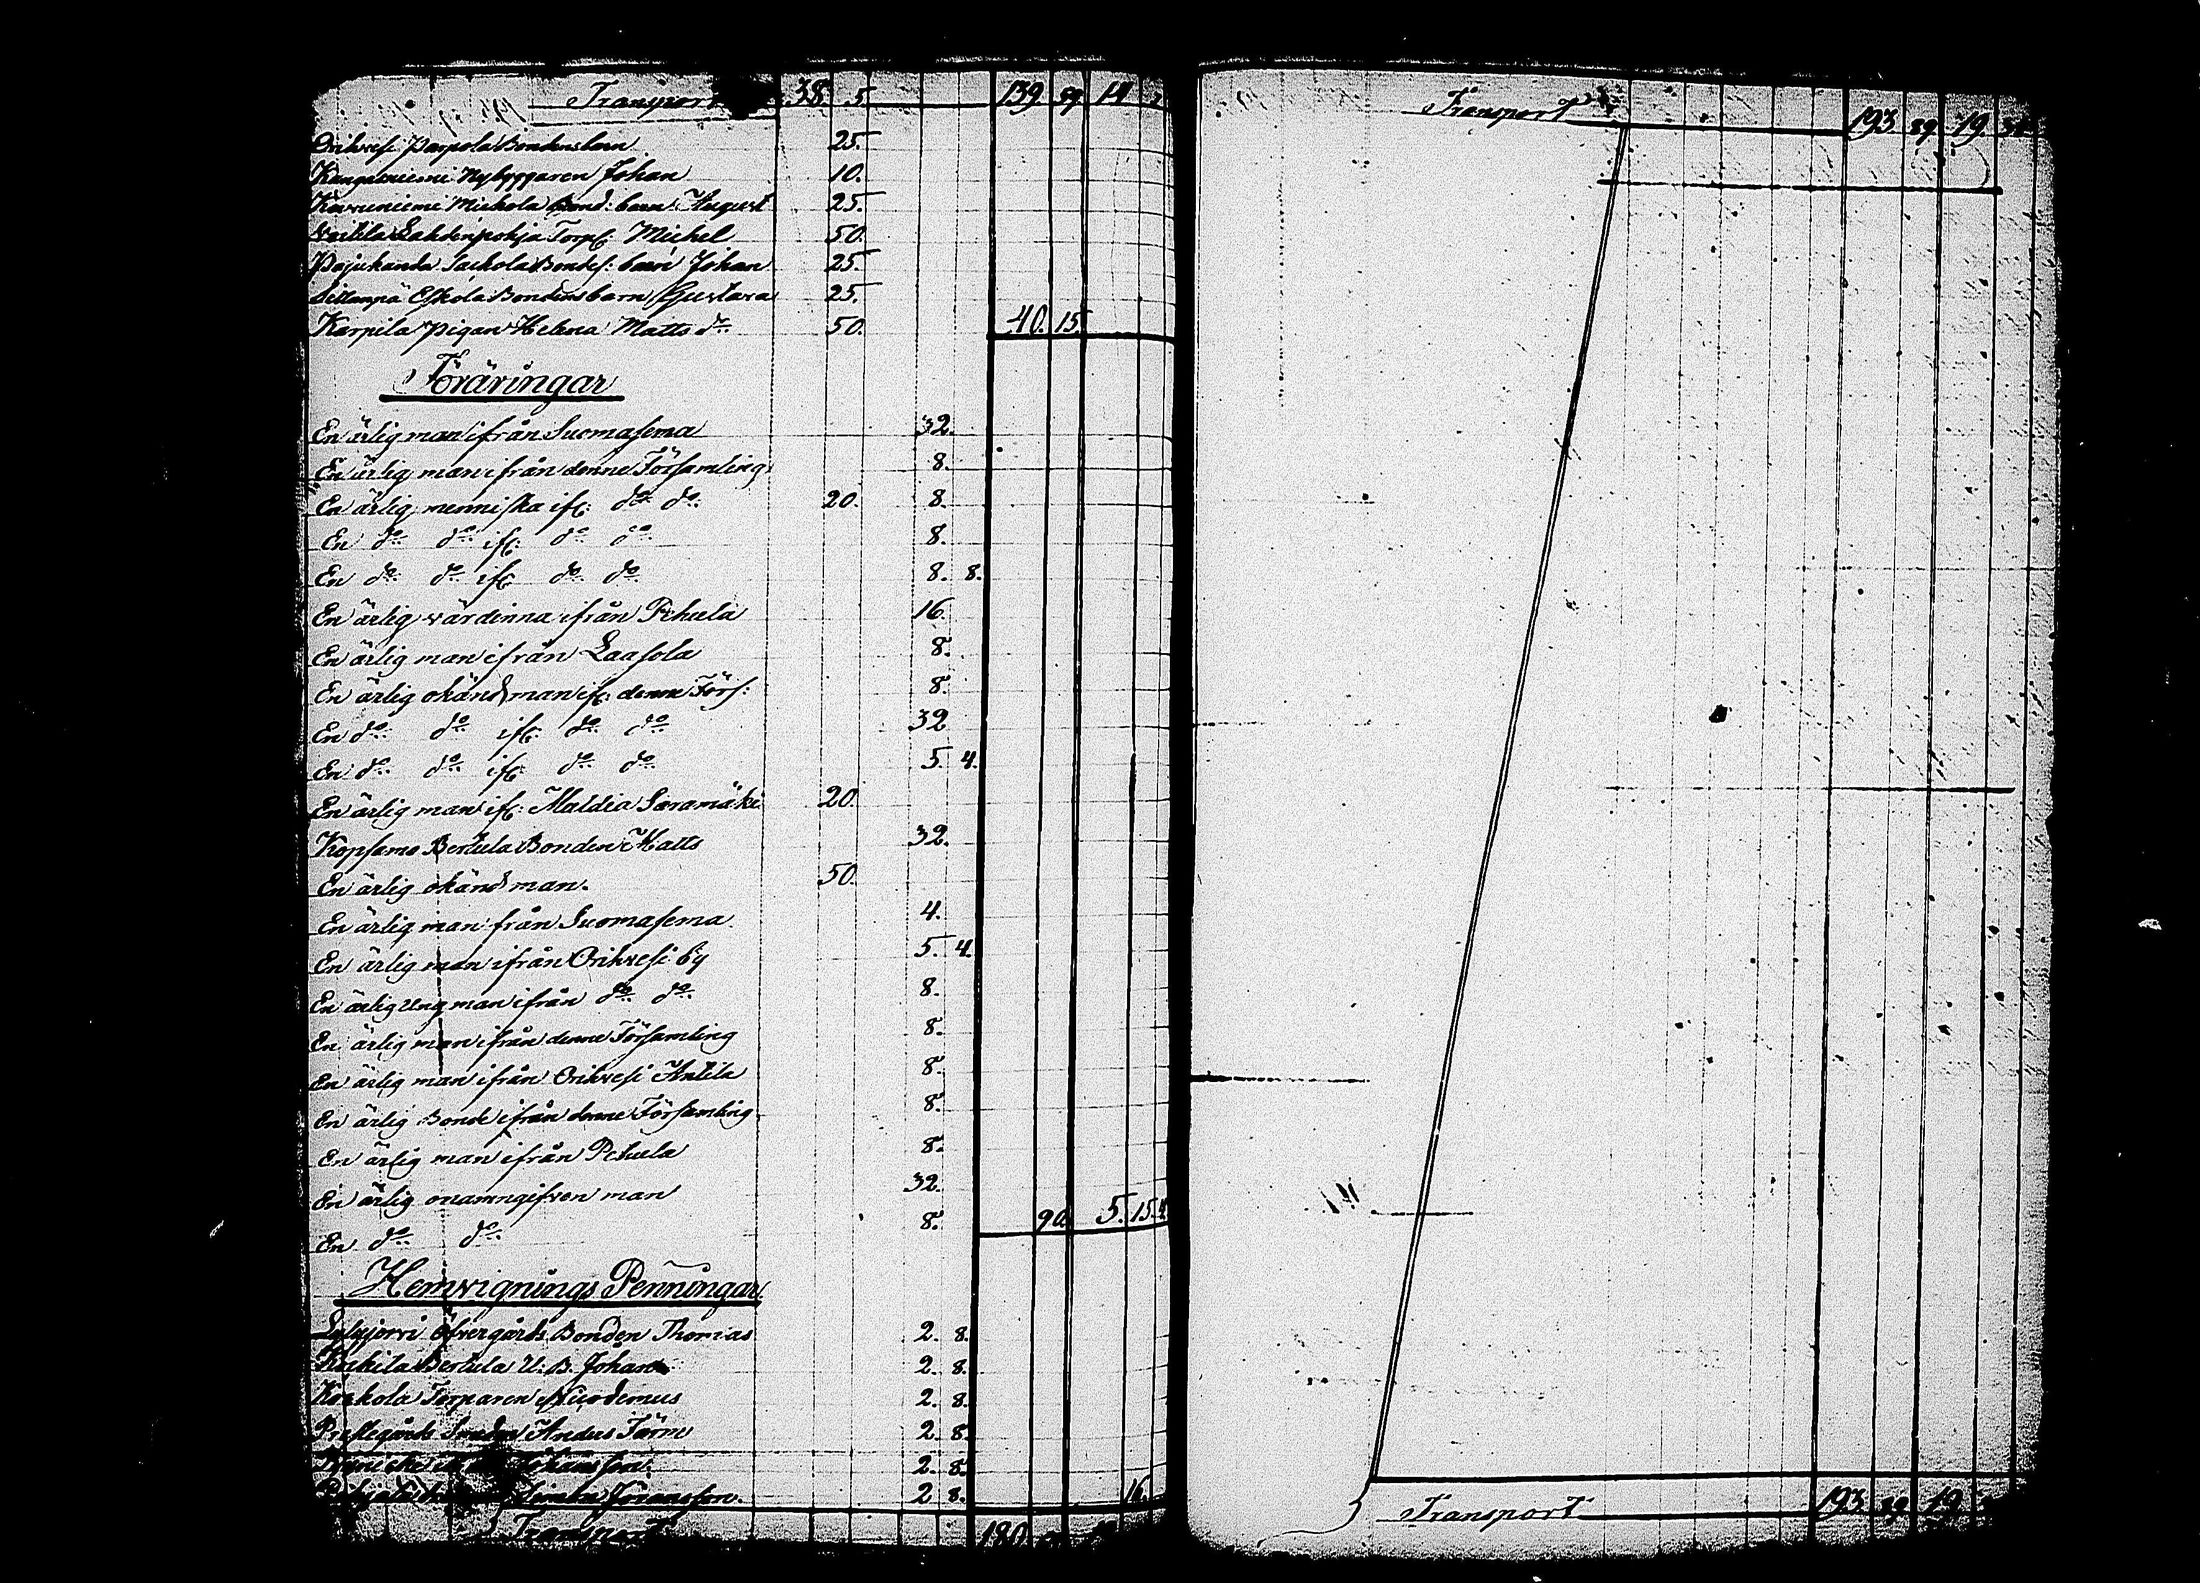 Transport 38 5. 139 89 14 2
Orihvesi Parpola Bondensbarn 25.
Kangasniemi Nybyggaren Johan 10.
Karuniemi Mickola Bond: barn August 25.
Lahdenpohja Torp: Michel 50.
Pajukanda Jackola Bondes: barn Johan 25.
Siltanpä Eskola Bondensbarn Gustava 25.
Karpila pigan Helena Matts do: 50. 40. 15.
Föräringar
En ärlig man ifrån Suomasema 32.
En ärlig man ifrån denne Församling 8.
En ärlig menniska if: do: do: 20. 8.
En do: do: if: do: do: 8.
En do: do: if: do: do: 8. 8.
En ärlig värdinna ifrån Pehula 16.
En ärlig man ifrån Laasola 8.
En ärlig okänd man if: denne Förs: 8.
En do: do: if: do: do: 32
En do: do: if: do: do: 5. 4.
En ärlig man if: Maldia Saramäki 20.
Kopsamo Bertula Bonden Matts 32.
En ärlig okänd man. 50.
En ärlig man från Suomasema 4.
En ärlig man ifrån Orihvesi by 5. 4.
En ärlig Ung man ifrån do: do: 8.
En ärlig man ifrån denne Församling 8.
En ärlig man ifrån Orihvesi Antila 8.
En ärlig Bonde ifrån denne Församling 8.
En ärlig man ifrån Pehula 8.
En ärlig onamngifven man 32.
En do: do: 8. 90. 5. 15. 4.
Hemvignings Penningar
Öfvergårds Bonden Thomas 2. 8.
Bertula U. B. Johan 2. 8.
Korkola Torparen Nicodemus 2. 8.
Prestegårds Anders Järn 2. 8.
Johansson. 2. 8.
2 8. 16.
Transport 180
Transport 193 89 19
Transport 193 89 19